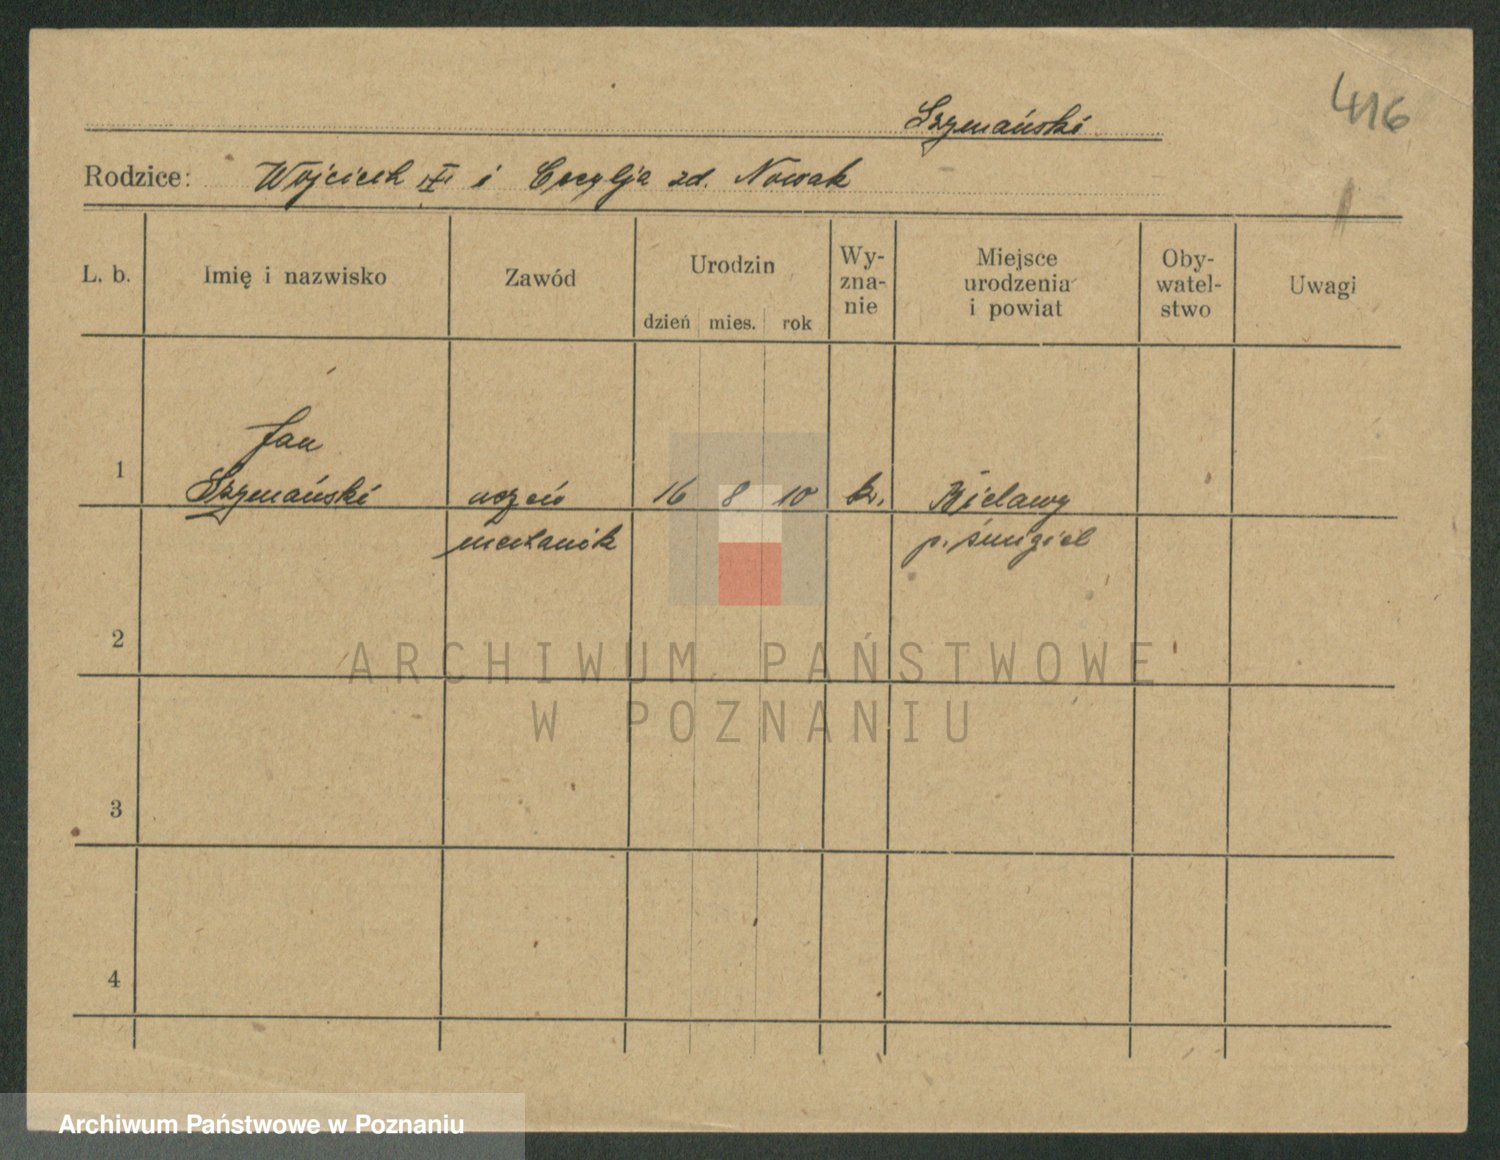 416
Szymański
Rodzice: Wojciech i Cecylja zd. Nowak
L. b. Imię i nazwisko Zawód Urodzin Wy-
zna-
nie Miejsce
urodzenia
i powiat Oby-
watel-
stwo Uwagi
dzień mies. rok
Jan
1 Szymański uczeń 16 8 10 kr. Bielawy
mechanik p. śmigiel
2
3
4
ARCHIWUM PAŃSTWOWE
W POZNANIU
Archiwum Państwowe w Poznaniu